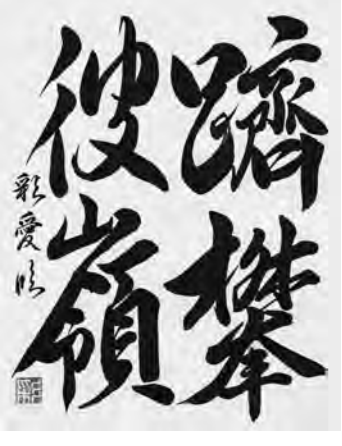 躋攀
彼嶺
彩愛臨